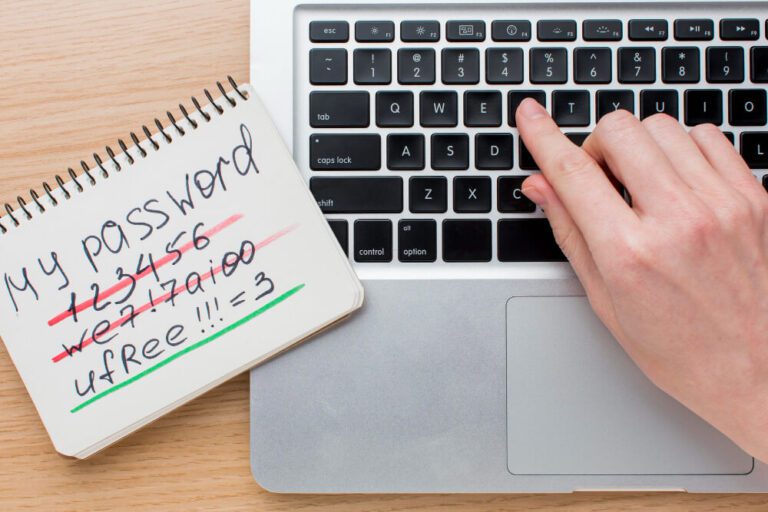 My password
123456
we7!7aioo
ufRee!!!=3
esc F1 F2 F3 F4 F5 F6 F7 F8 F9
~ ! 1 @ 2 # 3 $ 4 % 5 ^ 6 & 7 * 8 ( 9
tab Q W E T U I O
caps lock A S D
shift Z X C
control alt option